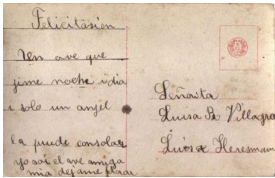 Felicitasión
Un ave que
jime noche i dia
e solo un anjel
la puede consolar
yo soi el ave amiga
mia dejame
Señorita
Luisa Villagra